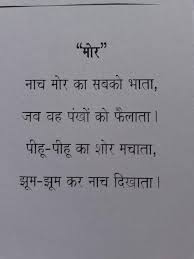 “मोर”
नाच मोर का सबको भाता,
जब वह पंखों को फैलाता।
पीहू-पीहू का शोर मचाता,
झूम-झूम कर नाच दिखाता।